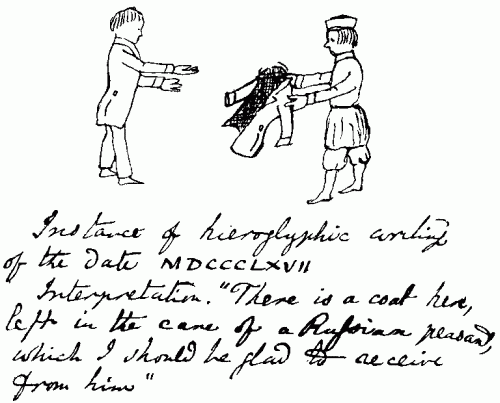 Instance of hieroglyphic writing
of the date MDCCCLXVII
Interpretation. "There is a coat here,
left in the care of a Russian peasant,
which I should be glad to receive
from him"